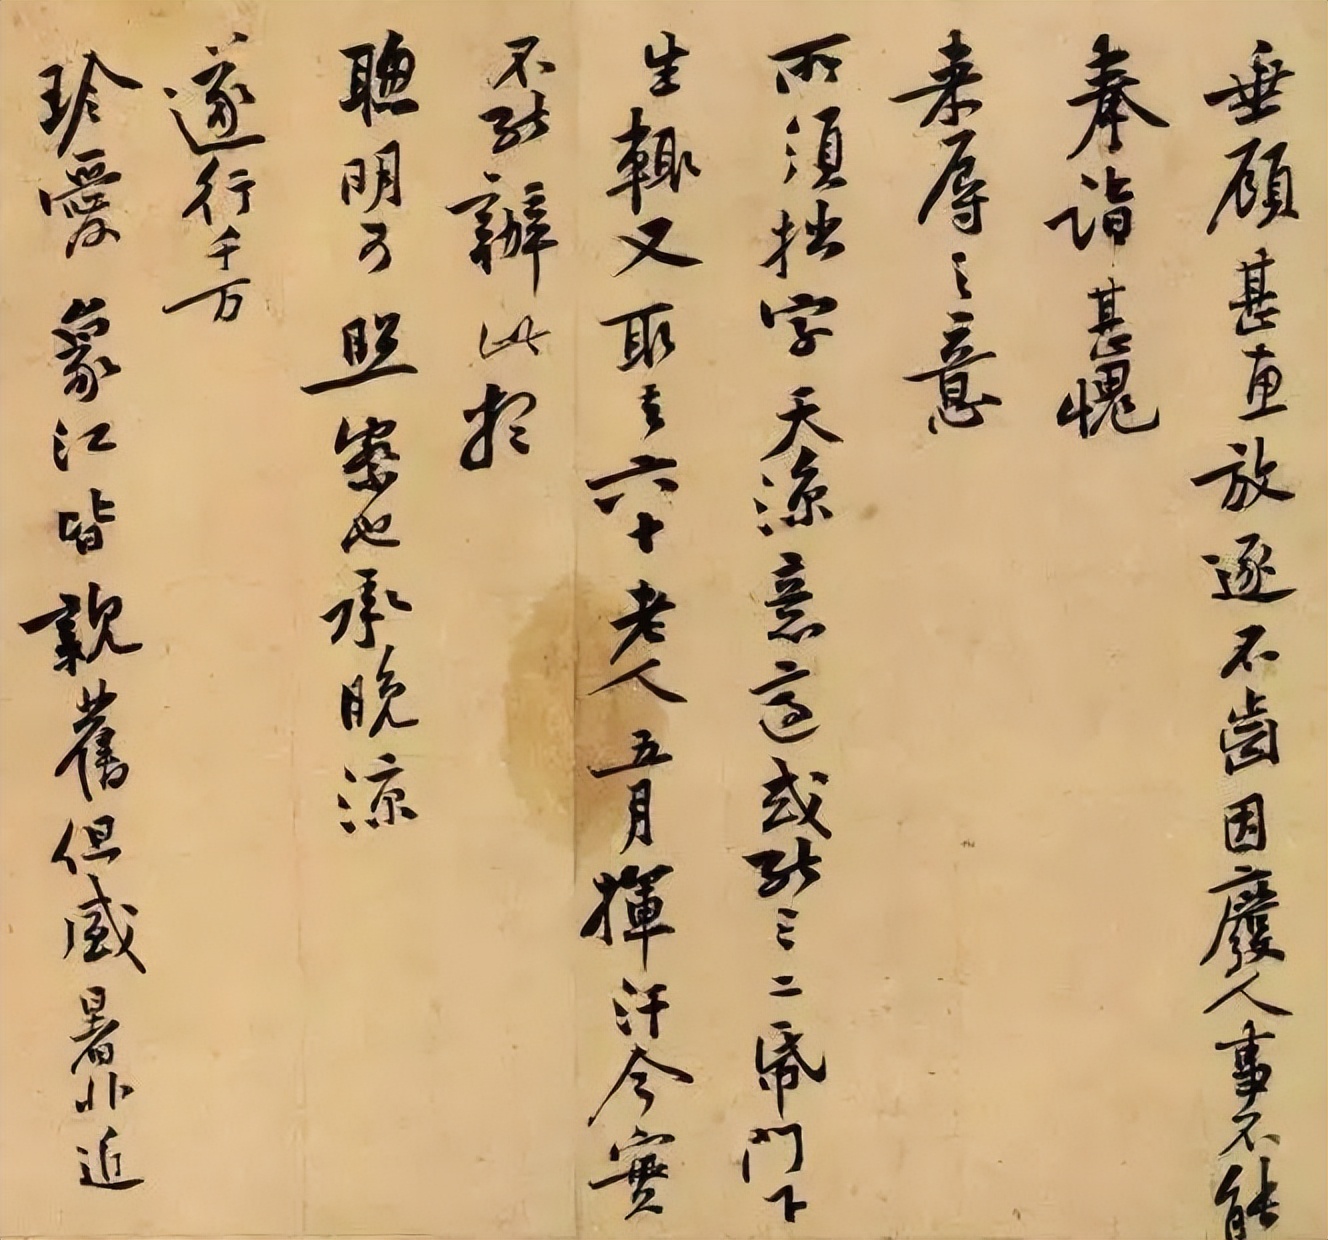 垂顧甚惠放逐不齒因廢人事不能
奉詣甚愧
来辱之意
所須拙字天涼意適或能三二帋門下
生輒又取去六十老人五月揮汗今實
不能辦此想
聰明可照察也承晚涼
遂行千万
珍愛象江皆親舊但盛暑非近